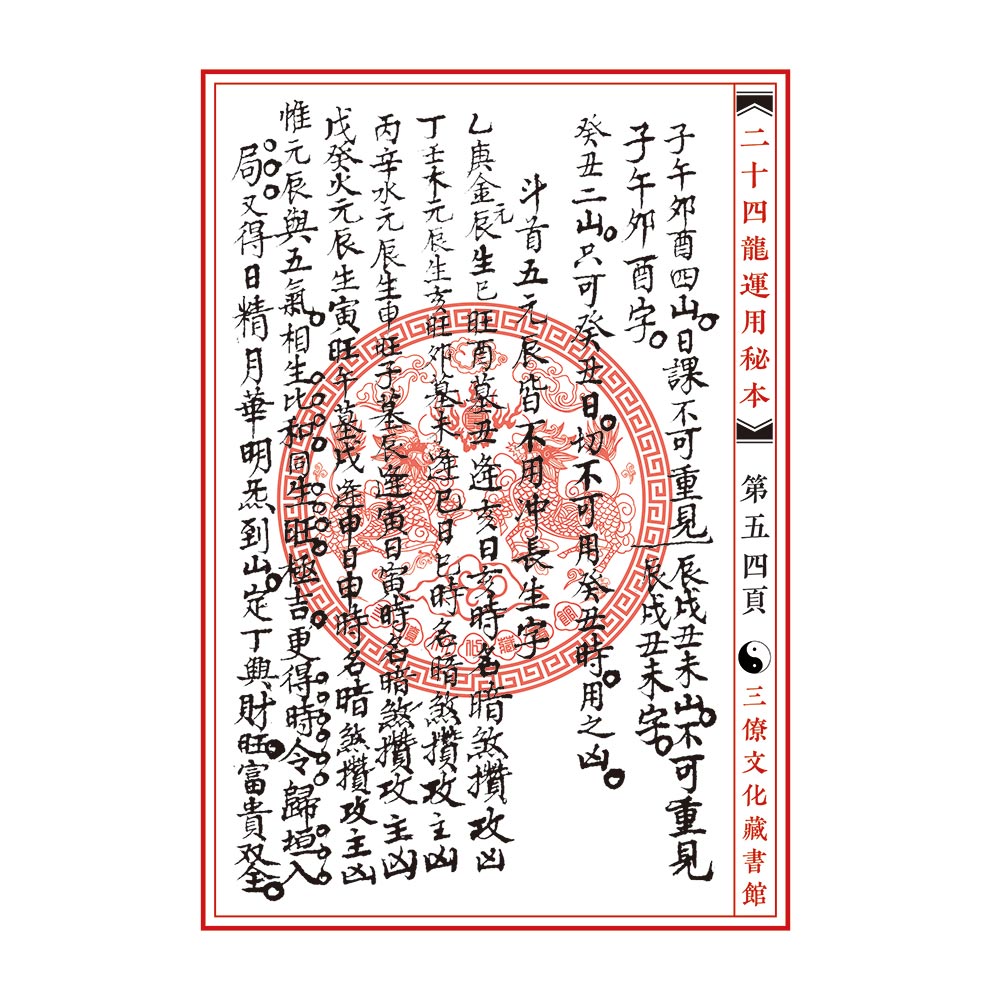 二十四龍運用秘本
第五四頁
三僚文化藏書館
子午卯酉四山。日課不可重見
子午卯酉字。
辰戌丑未山。不可重見
辰戌丑未字。
癸丑二山。只可癸丑日。切不可用癸丑時用之凶。
斗首五元辰皆不用冲長生字
乙庚金元辰生巳旺酉墓丑逢亥日亥時名暗煞攢攻凶
丁壬木元辰生亥旺卯墓未逢巳日巳時名暗煞攢攻主凶
丙辛水元辰生申旺子墓辰逢寅日寅時名暗煞攢攻主凶
戊癸火元辰生寅旺午墓戌逢申日申時名暗煞攢攻主凶
惟元辰與五氣。相生比和同生旺極吉。更得時令歸垣入
局。又得日精月華明炁到山。定丁興財旺。富貴双全。